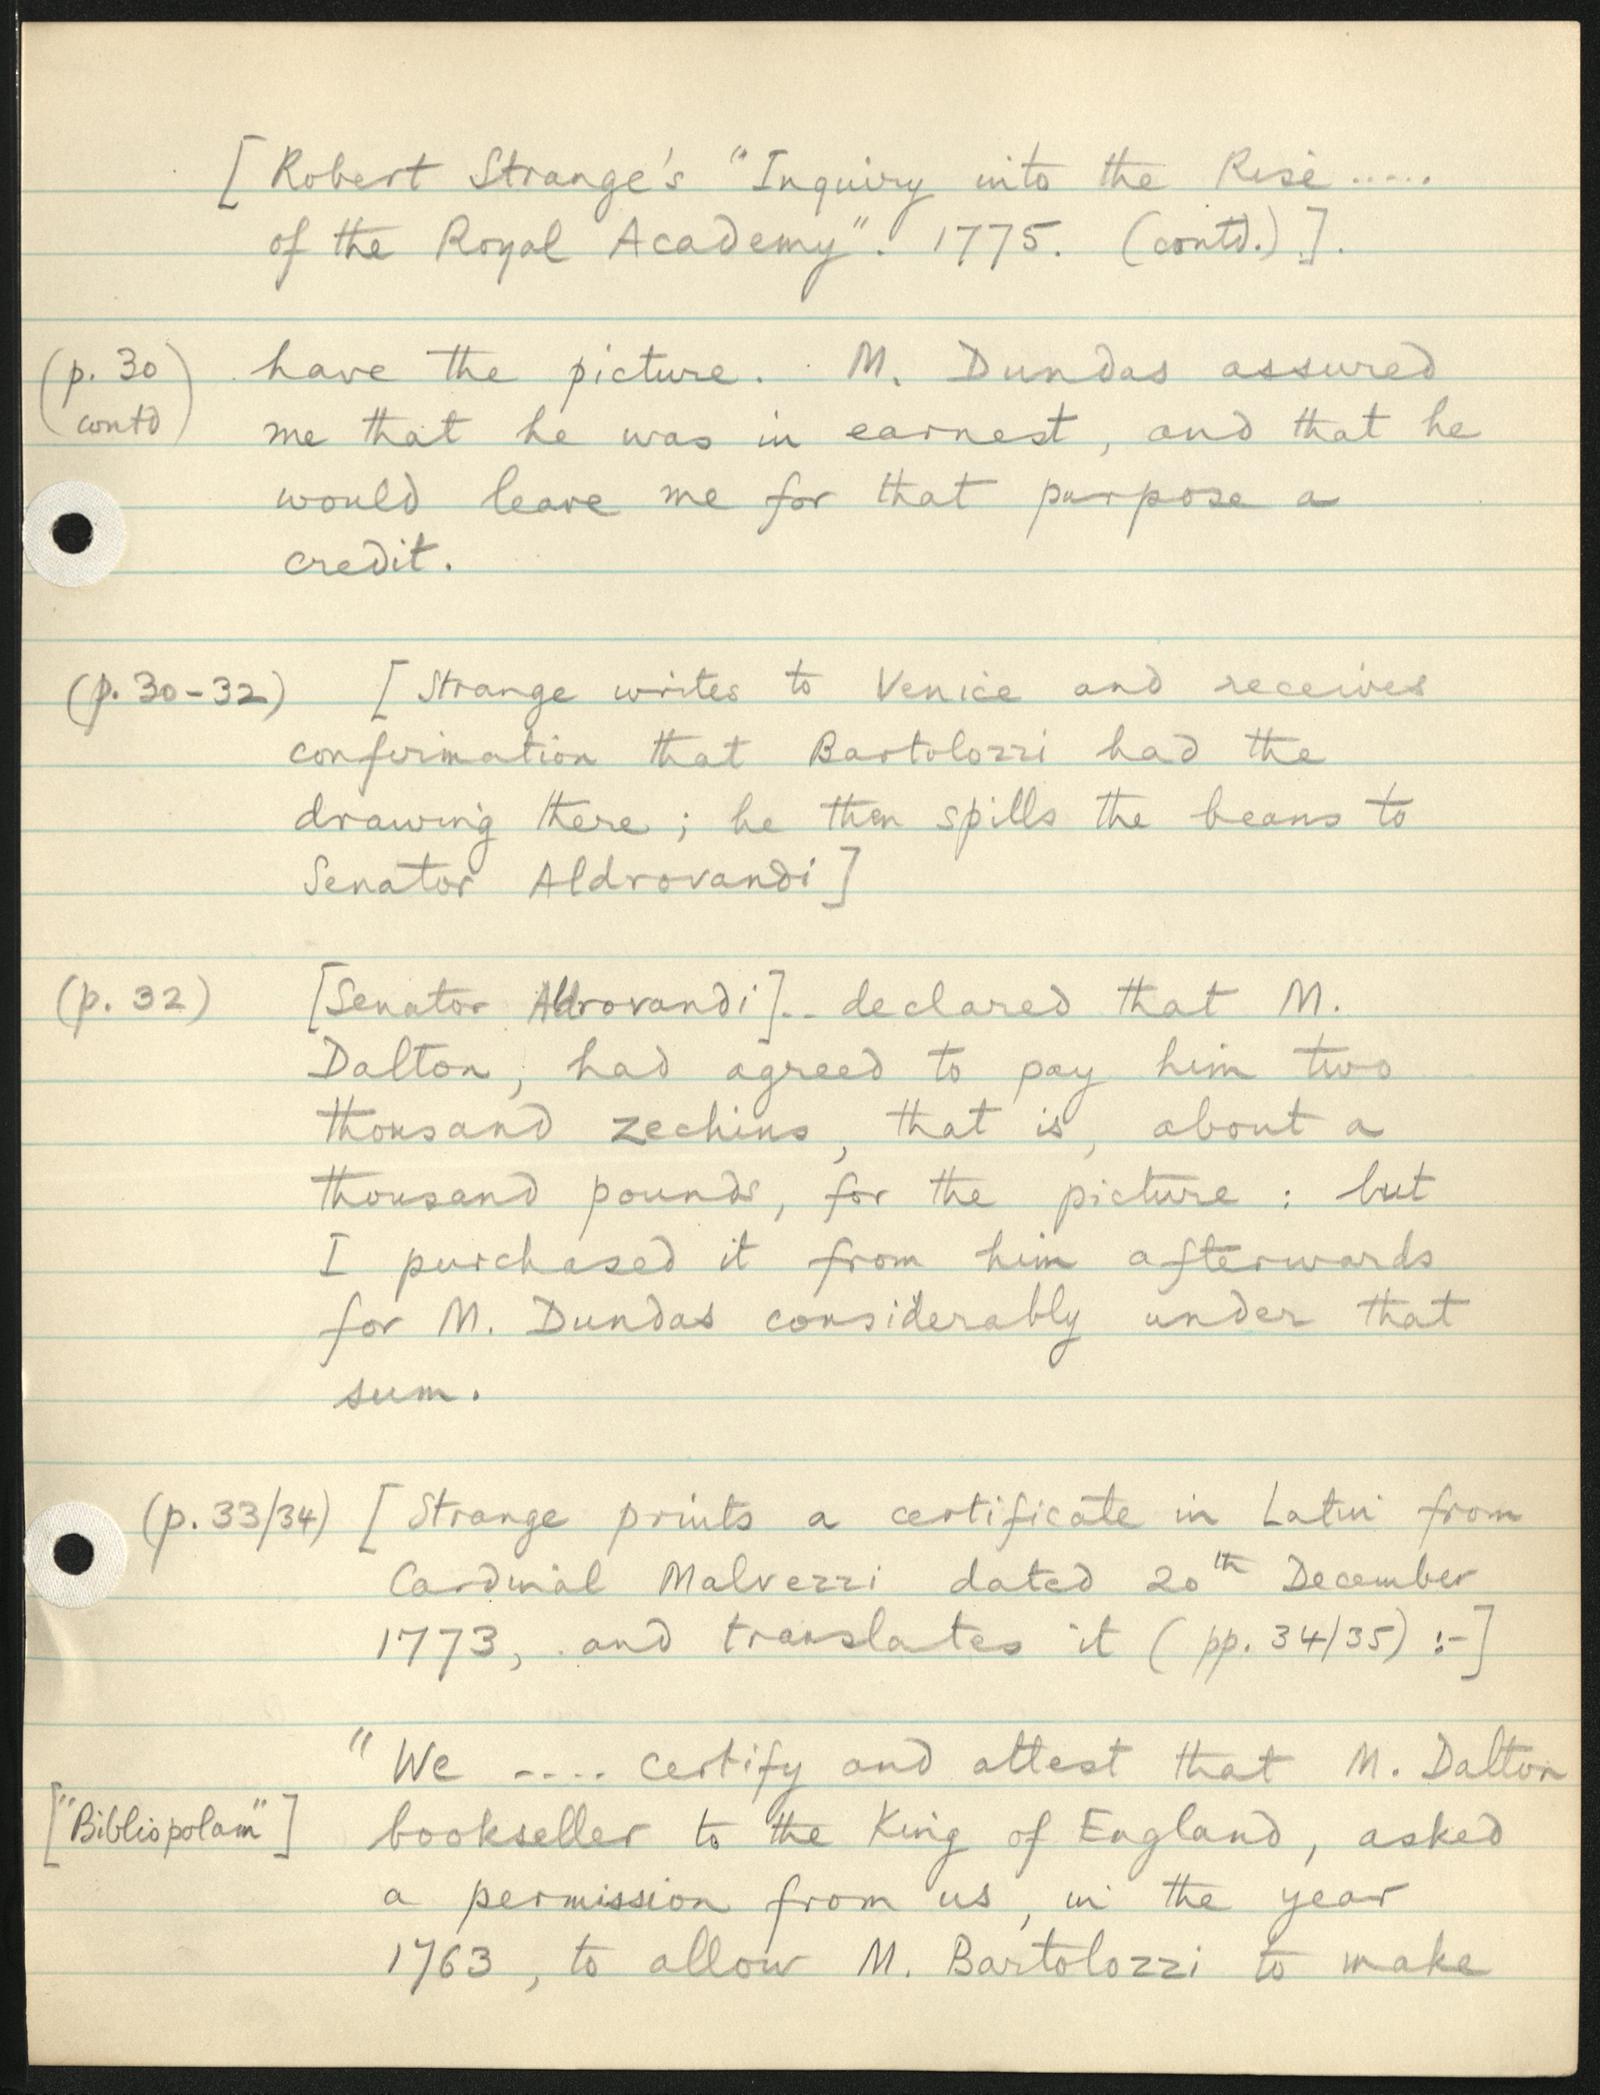 [ Robert Strange's "Inquiry into the Rise .....
of the Royal Academy". 1775. (contd.) ].
(p. 30 have the picture. M. Dundas assured
contd) me that he was in earnest, and that he
would leave me for that purpose a
credit.
(p. 30-32) [ Strange writes to Venice and receives
confirmation that Bartolozzi had the
drawing there; he then spills the beans to
Senator Aldrovandi ]
(p. 32) [Senator Aldrovandi].. declared that M.
Dalton, had agreed to pay him two
thousand zechins, that is, about a
thousand pounds, for the picture : but
I purchased it from him afterwards
for M. Dundas considerably under that
sum.
(p. 33/34) [ Strange prints a certificate in Latin from
Cardinal Malvezzi dated 20th December
1773, and translates it ( pp. 34/35) :- ]
"We .... certify and attest that M. Dalton
["Bibliopolam"] bookseller to the King of England, asked
a permission from us, in the year
1763, to allow M. Bartolozzi to make